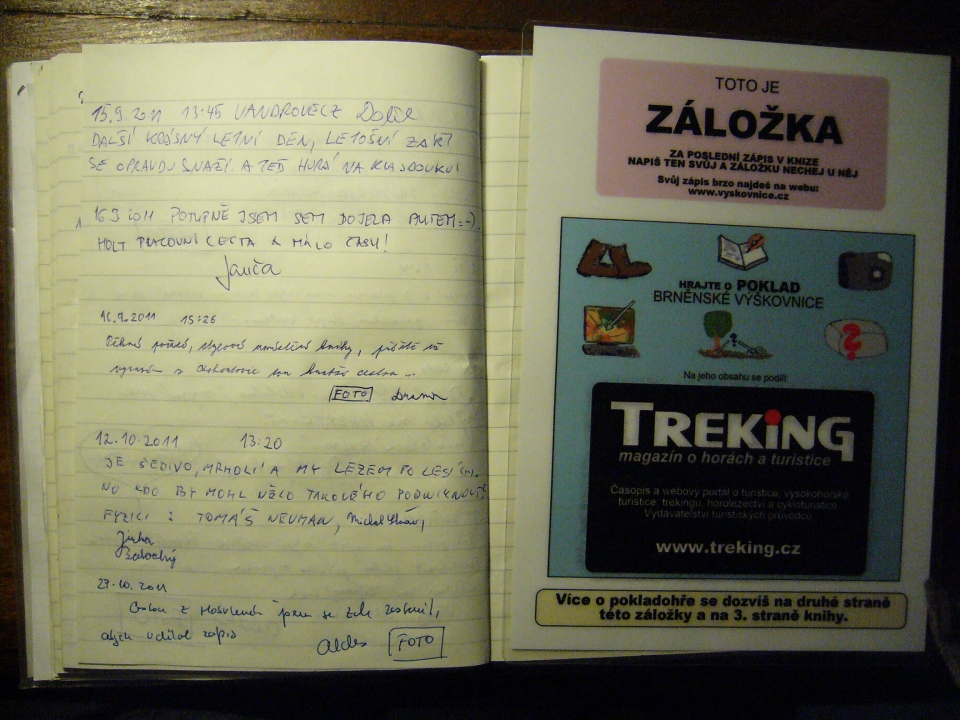 15.9.2011 13:45 VANDROVECZ
DALŠÍ KRÁSNÝ LETNÍ DEN, LETOŠNÍ ZÁŘÍ
SE OPRAVDU SNAŽÍ. A TEĎ HURÁ NA
16.9.2011 POTUPNĚ JSEM SEM DOJELA AUTEM :-).
HOLT PRACOVNÍ CESTA A MÁLO ČASU!
Janča
16.9.2011 15:26
knihy,
FOTO
12.10.2011 13:20
JE ŠEDIVO, MRHOLÍ A MY LEZEM PO LESÍCH.
NO KDO BY MOHL NĚCO TAKOVÉHO PODNIKNOUT?
FYZICI : TOMÁŠ NEUMAN, Michal
Jirka
27.10.2011
jsem se zde zastavil,
abych udělal zápis
FOTO
TOTO JE
ZÁLOŽKA
ZA POSLEDNÍ ZÁPIS V KNIZE
NAPIŠ TEN SVŮJ A ZÁLOŽKU NECHEJ U NĚJ
Svůj zápis brzo najdeš na webu:
www.vyskovnice.cz
HRAJTE O POKLAD
BRNĚNSKÉ VÝŠKOVNICE
Na jeho obsahu se podílí:
TREKING
magazín o horách a turistice
Časopis a webový portál o turistice, vysokohorské
turistice, trekingu, horolezectví a cykloturistice.
Vydavatelství turistických průvodců
www.treking.cz
Více o pokladohře se dozvíš na druhé straně
této záložky a na 3. straně knihy.